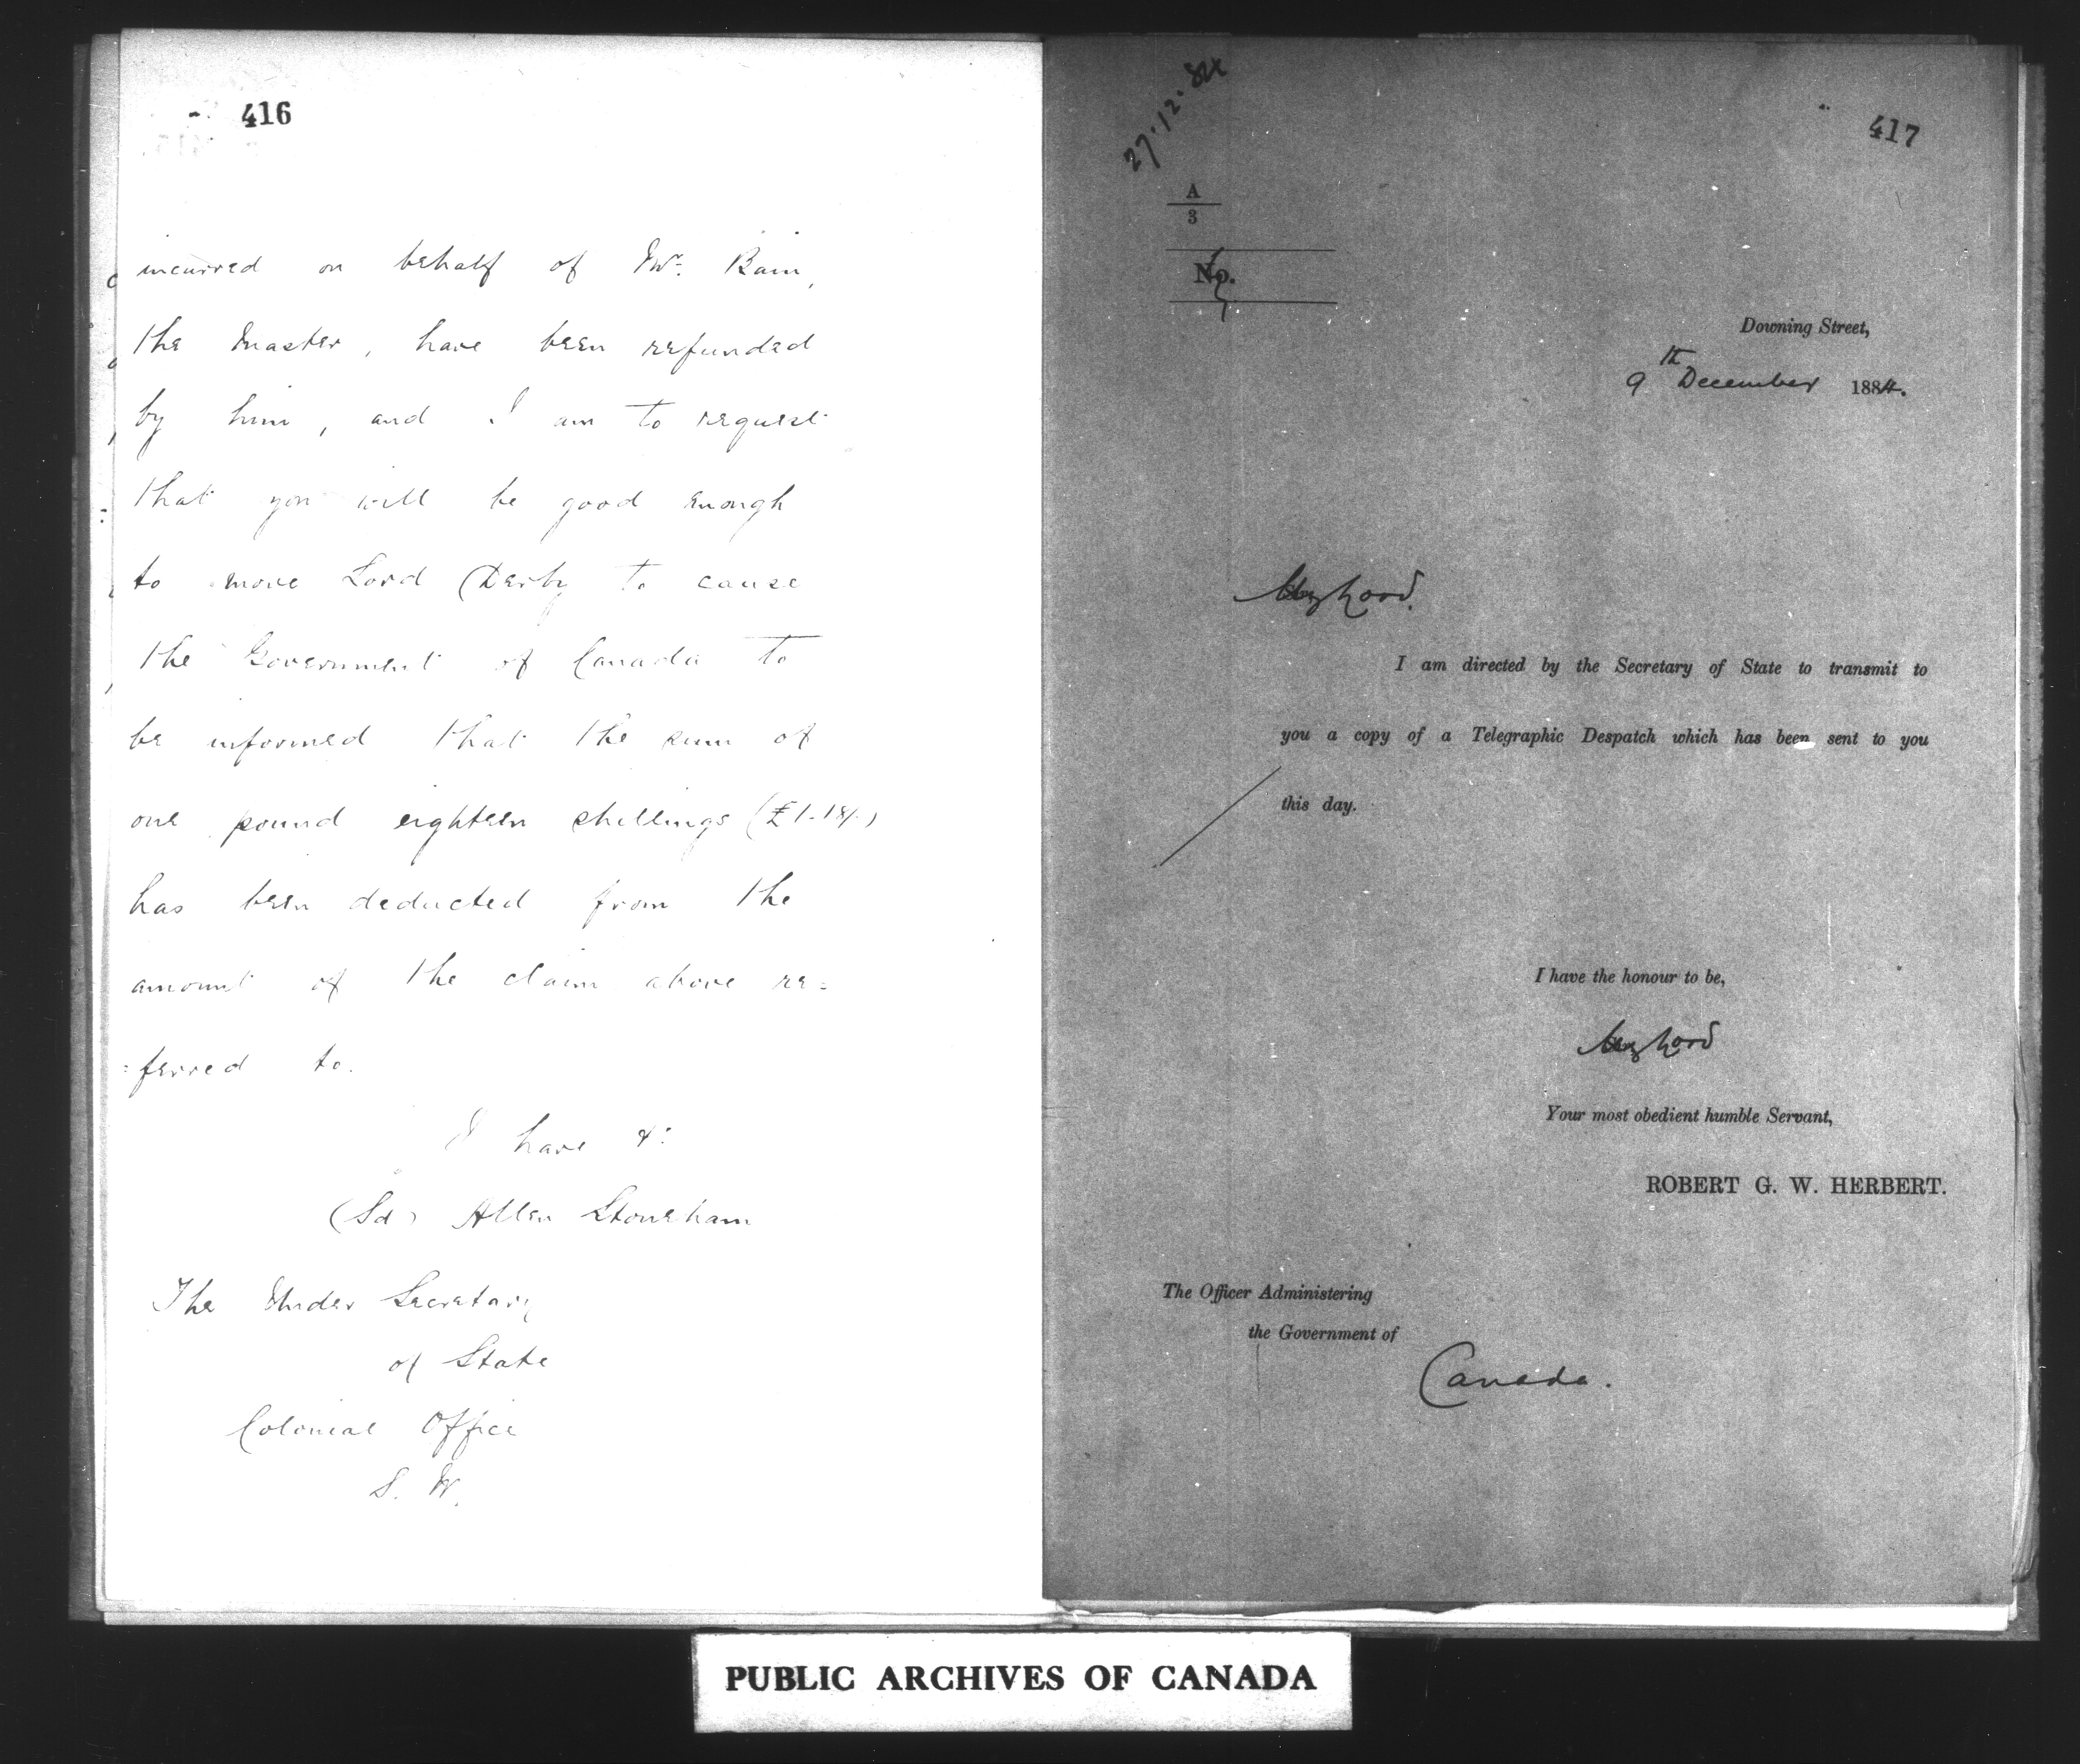 416
incurred on behalf of Mr. Bain,
the Master, have been refunded
by him, and I am to request
that you will be good enough
to move Lord Derby to cause
the Government of Canada to
be informed that the sum of
one pound eighteen shillings (£1-18/-)
has been deducted from the
amount of the claim above re=
=ferred to.
I have &c
(Sd) Allen Stoneham
The Under Secretary
of State
Colonial Office
S. W.
27.12.84
417
A
3
No.
Downing Street,
9th December 1884.
My Lord.
I am directed by the Secretary of State to transmit to
you a copy of a Telegraphic Despatch which has been sent to you
this day.
I have the honour to be,
My Lord
Your most obedient humble Servant,
ROBERT G. W. HERBERT.
The Officer Administering
the Government of
Canada.
PUBLIC ARCHIVES OF CANADA